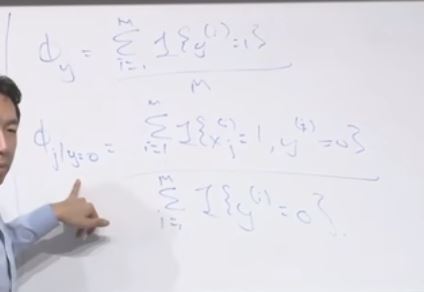 ϕ_y = Σ_{i=1}^{m} 1{y^{(i)}=1}
m
ϕ_{j|y=0} = Σ_{i=1}^{m} 1{x_j^{(i)}=1, y^{(i)}=0}
Σ_{i=1}^{m} 1{y^{(i)}=0}